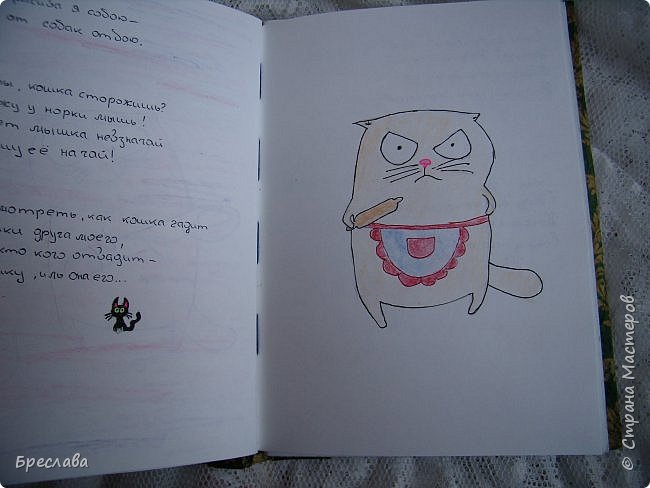 я собою–
от собак отбою.
кошка сторожишь?
у норки мышь!
мышка невзначай
её на чай!
как кошка гадит
друга моего,
кто кого отвадит –
иль она его...
Бреслава
© Страна Мастеров